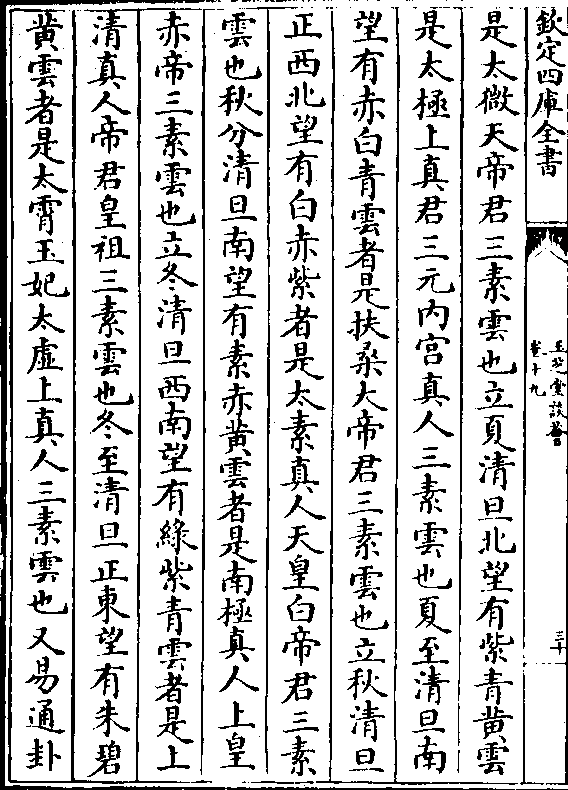 欽定四庫全書
玉芝堂談薈
卷十九
三十
是太微天帝君三素雲也立夏清旦北望有紫青黃雲
是太極上真君三元内宫真人三素雲也夏至清旦南
望有赤白青雲者是扶桑大帝君三素雲也立秋清旦
正西北望有白赤紫者是太素真人天皇白帝君三素
雲也秋分清旦南望有素赤黃雲者是南極真人上皇
赤帝三素雲也立冬清旦西南望有綠紫青雲者是上
清真人帝君皇祖三素雲也冬至清旦正東望有朱碧
黃雲者是太霄玉妃太虛上真人三素雲也又易通卦